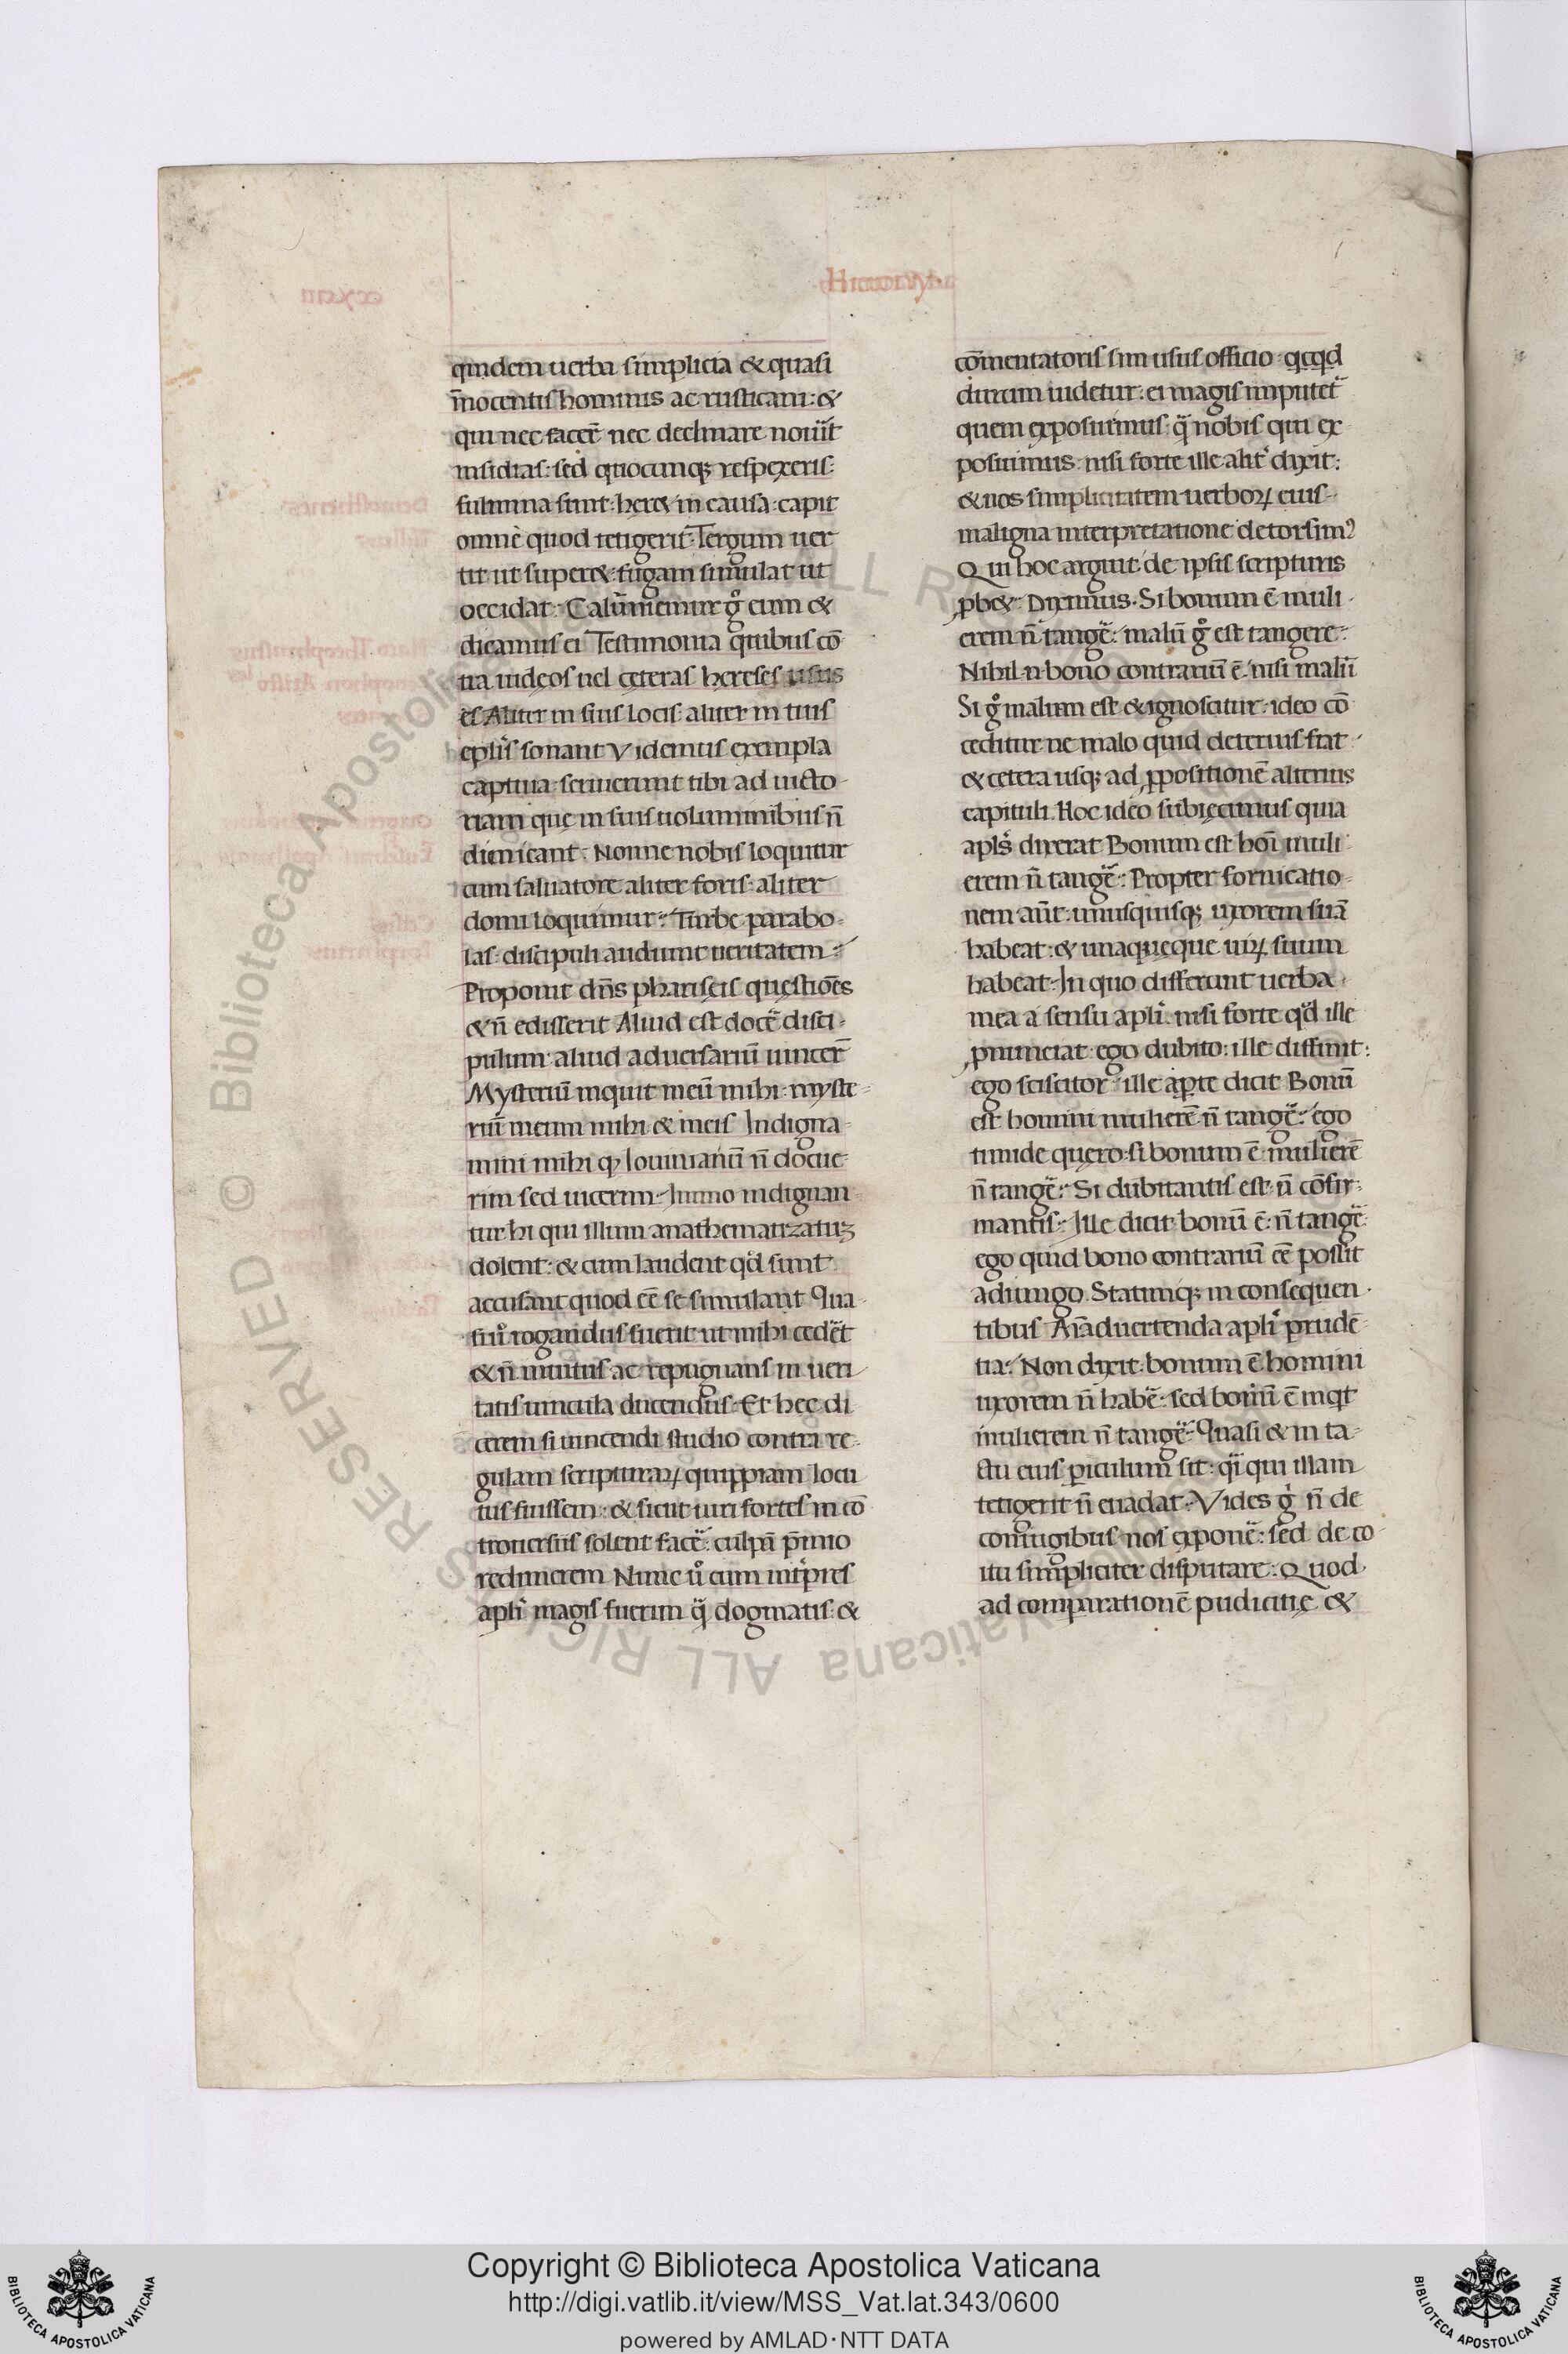 Hieronym
quidem uerba simplicia & quasi
īnocentis hominis ac rusticani: &
qui nec facer̄ nec declinare nouit
insidias: sed quocunq; respexeris:
fulmina sunt: heret in causa: capit
omne quod tetigerit: Tergum uer
tit ut superet: fugam simulat ut
occidat: Calūniemur g° eum &
dicamus ei Testimonia quibus cō
tra iudęos uel ceteras hereses usus
es Aliter in suis locis aliter in tuis
eplis sonant Videmus exempla
captiua: seruierunt tibi ad uicto-
riam que in suis uoluminibus n̄
dimicant: Nonne nobis loquitur
cum saluatore aliter foris: aliter
domi loquimur: Turbe parabo-
las: discipuli audiunt ueritatem:
Proponit dn̄s pharisęis questiōes
& n̄ edisserit Aliud est docē disci-
pulum: aliud aduersariū uincer̄
Mysteriū inquit meū mihi: myste-
riū meum mihi & meis Indigna-
mini mihi q; Iouinianū n̄ docue-
rim sed uicerim: Immo indignan-
tur hi qui illum anathematizatuz
dolent: & cum laudent qd sunt
accusant quod eē se simulant Qua-
si u° rogandus fuerit ut mihi cedēt
& n̄ inuitus ac repugnans in ueri-
tatis uincula ducendus: Et hec di
cerem si uincendi studio contra re-
gulam scripturaꝝ quippiam locu
tus fuissem: & sicut uiri fortes in cō
trouersiis solent facē: culpā p̄mio
redimerem Nunc u° cum int̄pres
apli magis fuerim q̄ dogmatis: &
cōmentatoris sim usus officio: qcqd
durum uidetur: ei magis imputet̄
quem exposuimus: q̄ nobis qui ex-
posuimus: nisi forte ille alit̄ dixit:
& nos simplicitatem uerboꝝ eius
maligna interpretatione detorsim9
Qui hoc arguit de ipsis scripturis
ꝓbet: Diximus: Si bonum ē muli-
erem n̄ tangē: malū g° est tangere:
Nihil n̄ bono contrariū ē: nisi malū
Si g° malum est & ignoscitur: ideo cō
ceditur ne malo quid deterius fiat
& cetera usq; ad ꝓpositionē alterius
capituli Hoc ideo subiecimus quia
apls dixerat Bonum est hoī muli-
erem n̄ tangē: Propter fornicatio-
nem aūt: unusquisq; uxorem suā
habeat: & unaqueque uiꝝ suum
habeat: In quo differunt uerba
mea a sensu apli: nisi forte qd ille
ꝓnunciat: ego dubito: ille diffinit:
ego sciscitor: ille aꝑte dicit Bonū
est homini mulierē n̄ tangē: ego
timide quero: si bonum ē mulierē
n̄ tangē: Si dubitantis est: n̄ cōfir-
mantis: Ille dicit bonū ē: n̄ tangē
ego quid bono contrariū eē possit
adiungo Statimq; in consequen-
tibus Aīaduertenda apli prudē-
tia: Non dixit: bonum ē homini
uxorem n̄ habē: sed bonū ē inqt
mulierem n̄ tangē: Quasi & in ta-
ctu eius ꝑiculum sit: qī qui illam
tetigerit n̄ euadat: Vides g° n̄ de
coniugibus nos exponē: sed de co-
itu simpliciter disputare: Quod
ad comparationē pudicitię &
Copyright © Biblioteca Apostolica Vaticana
http://digi.vatlib.it/view/MSS_Vat.lat.343/0600
powered by AMLAD·NTT DATA